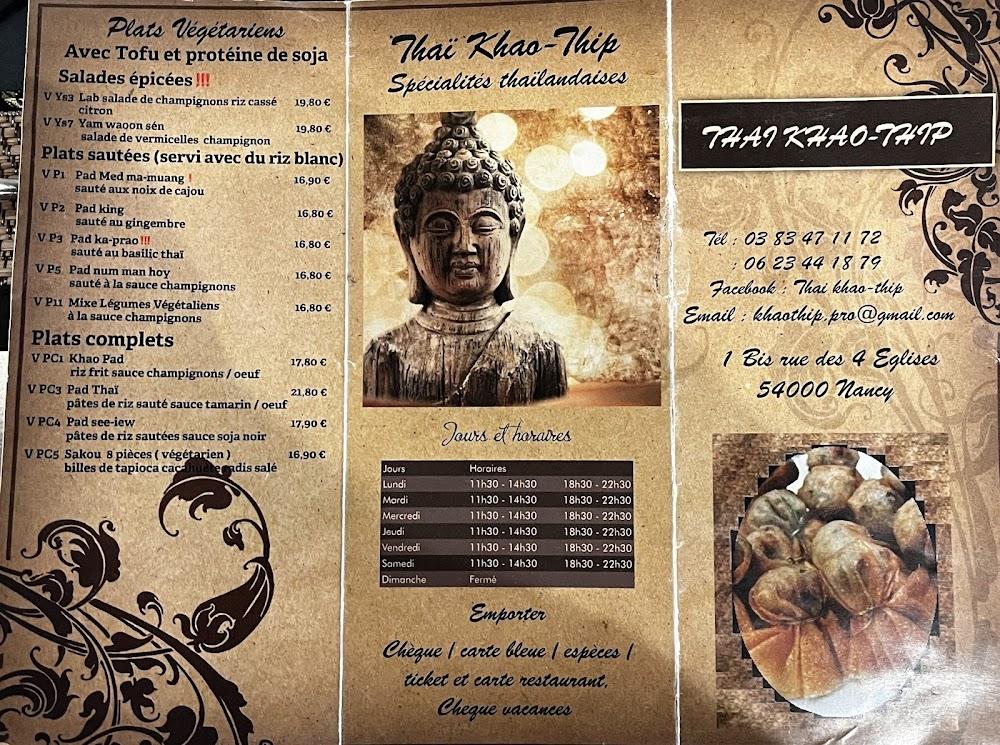 Plats Végétariens
Avec Tofu et protéine de soja
Salades épicées !!!
V Ys3 Lab salade de champignons riz cassé 19,80 €
citron
V Ys7 Yam waoon sén 19,80 €
salade de vermicelles champignon
Plats sautées (servi avec du riz blanc)
V P1 Pad Med ma-muang ! 16,90 €
sauté aux noix de cajou
V P2 Pad king 16,80 €
sauté au gingembre
V P3 Pad ka-prao !!! 16,80 €
sauté au basilic thaï
V P5 Pad num man hoy 16,80 €
sauté à la sauce champignons
V P11 Mixe Légumes Végétaliens 16,80 €
à la sauce champignons
Plats complets
V PC1 Khao Pad 17,80 €
riz frit sauce champignons / oeuf
V PC3 Pad Thaï 21,80 €
pâtes de riz sauté sauce tamarin / oeuf
V PC4 Pad see-iew 17,90 €
pâtes de riz sautées sauce soja noir
V PC5 Sakou 8 pièces ( végétarien ) 16,90 €
billes de tapioca cacahuète radis salé
Thaï Khao-Thip
Spécialités thaïlandaises
Jours et horaires
Jours Horaires
Lundi 11h30 - 14h30 18h30 - 22h30
Mardi 11h30 - 14h30 18h30 - 22h30
Mercredi 11h30 - 14h30 18h30 - 22h30
Jeudi 11h30 - 14h30 18h30 - 22h30
Vendredi 11h30 - 14h30 18h30 - 22h30
Samedi 11h30 - 14h30 18h30 - 22h30
Dimanche Fermé
Emporter
Chèque / carte bleue / espèces /
ticket et carte restaurant,
Cheque vacances
THAI KHAO-THIP
Tél : 03 83 47 11 72
: 06 23 44 18 79
Facebook : Thai khao-thip
Email : khaothip.pro@gmail.com
1 Bis rue des 4 Eglises
54000 Nancy